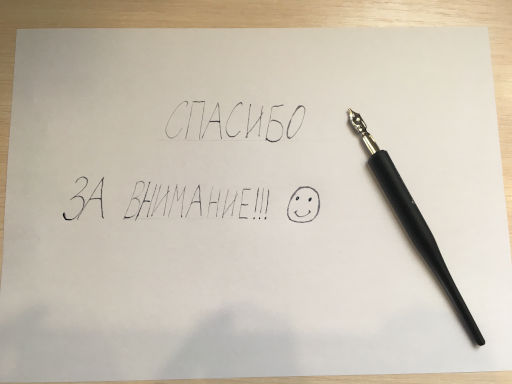 СПАСИБО
ЗА ВНИМАНИЕ!!! ☺